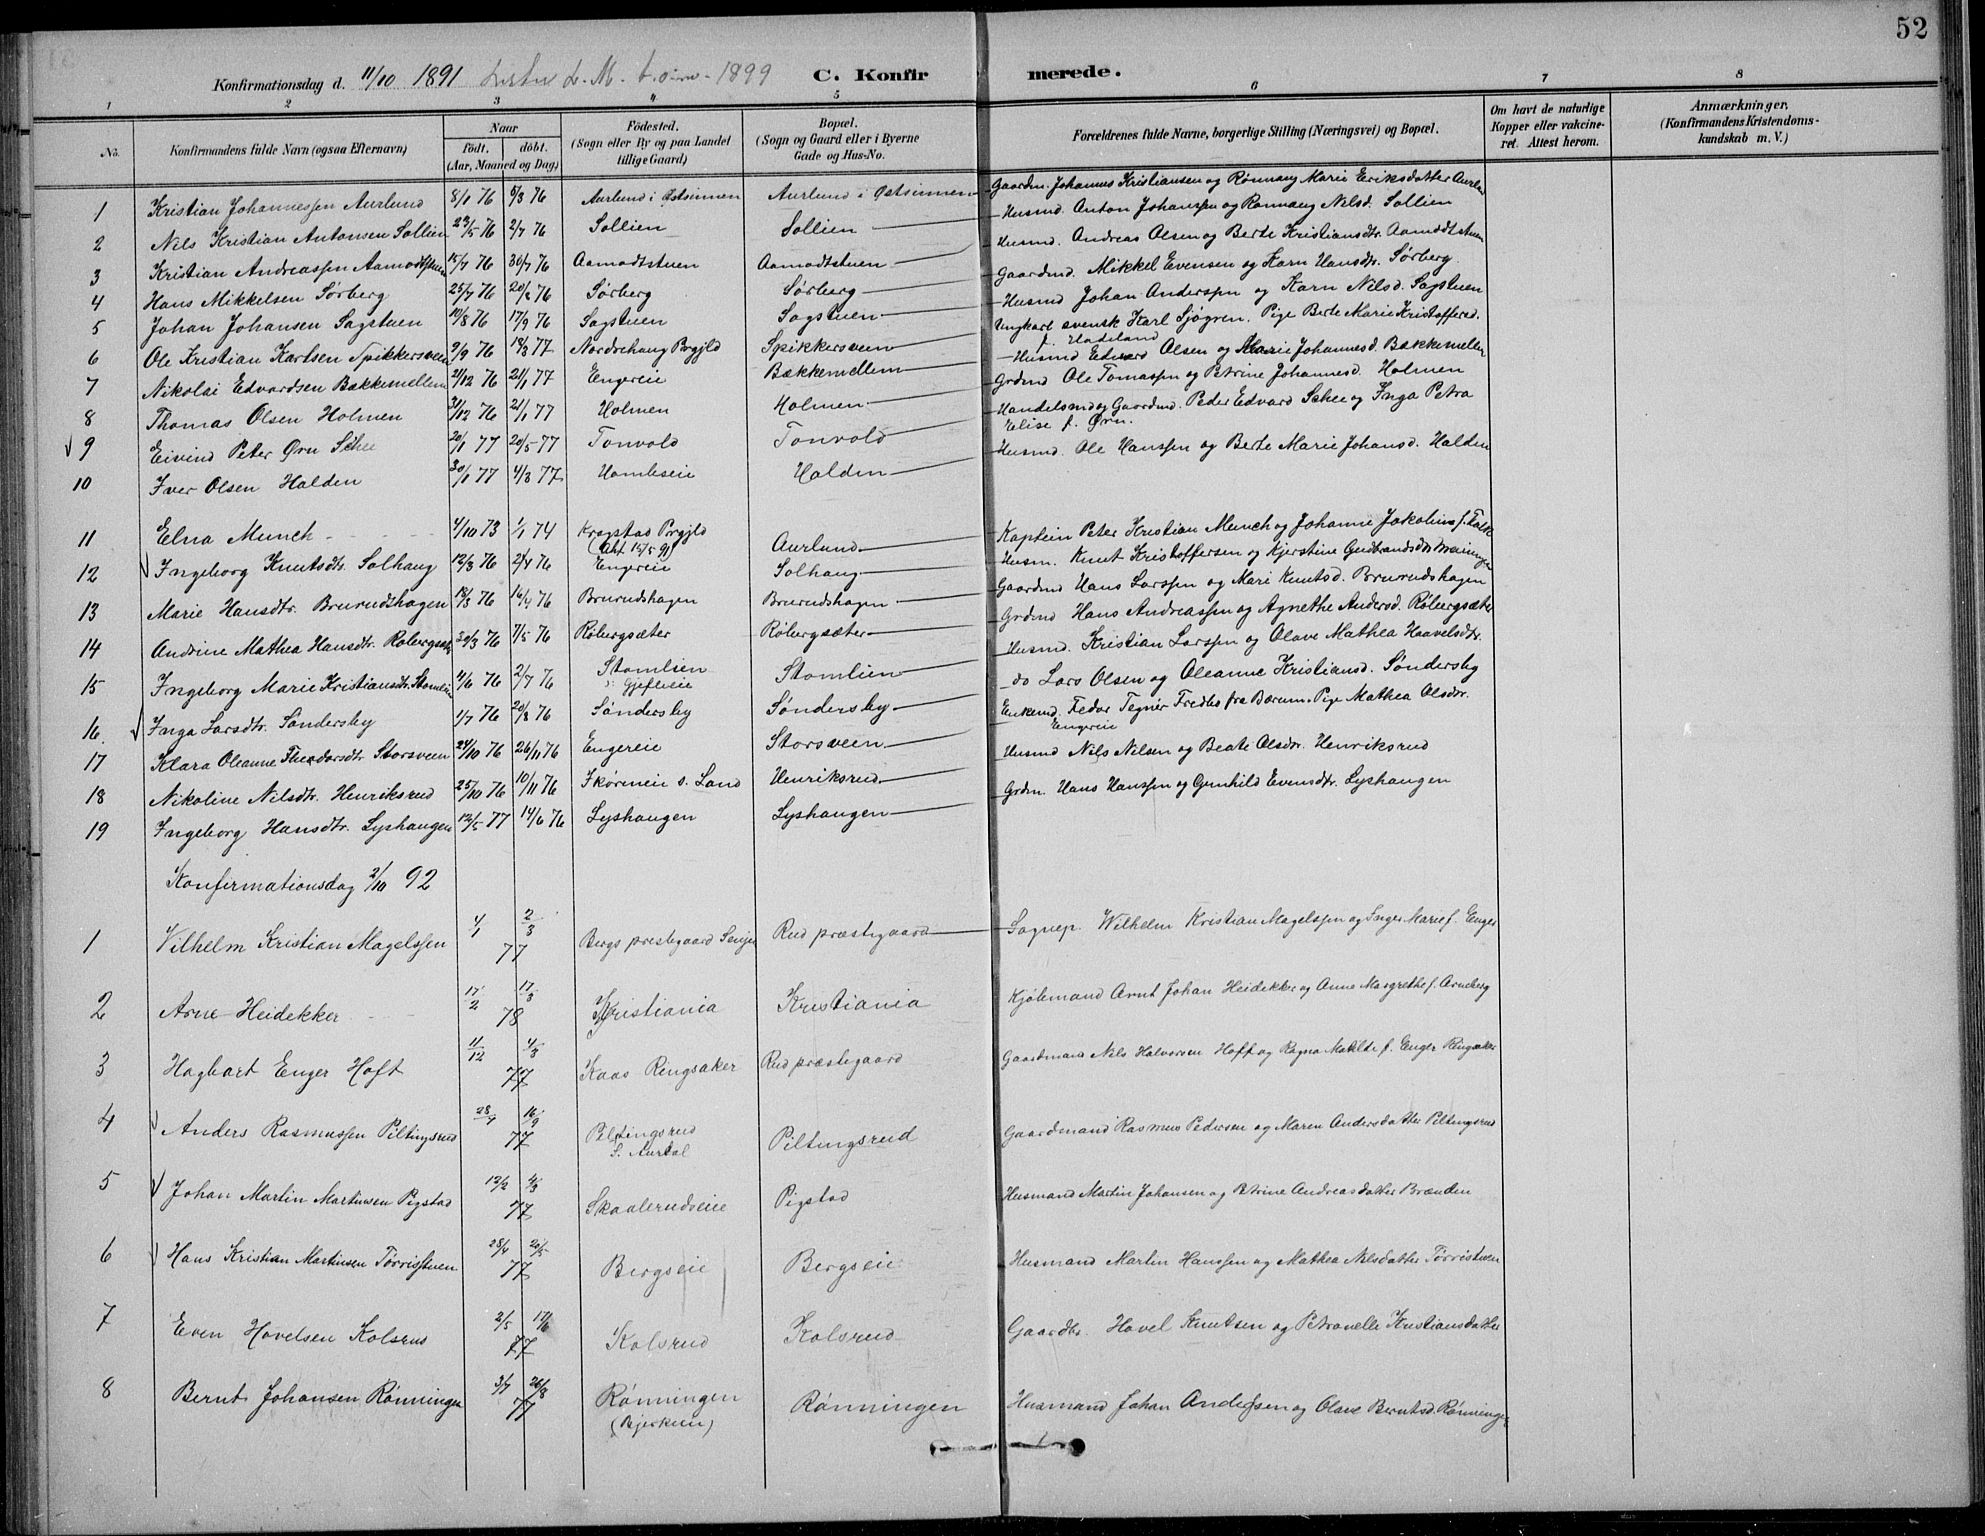 52
Konfirmationsdag d. 11/10 1891 1899 C. Konfirmerede.
1 2 3 4 5 6 7 8
No. Konfirmandens fulde Navn (ogsaa Efternavn) Naar Født. døbt. (Aar, Maaned og Dag) Fødested. (Sogn eller By og paa Landet tillige Gaard) Bopæl. (Sogn og Gaard eller i Byerne Gade og Hus-No. Forældrenes fulde Navne, borgerlige Stilling (Næringsvei) og Bopæl. Om havt de naturlige Kopper eller vakcineret. Attest herom. Anmærkninger. (Konfirmandens Kristendomskundskab m. V.)
1 Kristian Johannessen Aurlund 8/1 76 5/3 76 Aurlund i Østsinnen Aurlund i Østsinnen Gaardm. Johannes Kristiansen og Rønnaug Marie Eriksdatter Aurlund
2 Nils Kristian Antonsen Sollien 23/5 76 2/7 76 Sollien Sollien Husmd. Anton Johanssen og Rønnaug Nilsd. Sollien
3 Kristian Andreassen Aamodtstuen 15/7 76 30/7 76 Aamodtstuen Aamodtstuen Husmd. Andreas Olsen og Berte Kristiansdtr. Aamodtstuen
4 Hans Mikkelsen Sørberg 25/7 76 20/8 76 Sørberg Sørberg Gaardmd. Mikkel Evensen og Karn Hansdtr. Sørberg.
5 Johan Johansen Sagstuen 10/8 76 17/9 76 Sagstuen Sagstuen Husmd Johan Anderssen og Karn Nilsd. Sagstuen
6 Ole Kristian Karlsen Spikkersveen 2/9 76 18/3 77 Nordrehaug Prgjld Spikkersveen Ungkarl svensk Karl Sjøgren. Pige Berte Marie Kristoffersd. f. Hadeland
7 Nikolai Edvardsen Bækkemellem 2/12 76 21/1 77 Engereie Bækkemellem Husmd Edvard Olsen og Marie Johannesd. Bækkemellem
8 Thomas Olsen Holmen 31/12 76 21/1 77 Holmen Holmen Grdmd Ole Tomassen og Petrine Johannesd. Holmen
9 Eivind Peter Ørn Schee 20/1 77 20/5 77 Tonvold Tonvold Handelsmd og Gaardmd. Peder Edvard Schee og Inga Petra Elise f. Ørn.
10 Iver Olsen Halden 30/1 77 4/3 77 Homleseie Halden Husmd. Ole Hanssen og Berte Marie Johansd. Halden
11 Elna Munch 4/10 73 1/1 74 Kragstad Prgjld (Att. 15/5 91) Aurlund Kaptein Peter Kristian Munch og Johanne Jakobine f. Falk
12 Ingeborg Knutsdtr. Solhaug 12/3 76 2/4 76 Engereie Solhaug Husm. Knut Kristoffersen og Kjerstine Gudbrandsdtr
13 Marie Hansdtr. Bruruds­hagen 18/3 76 16/4 76 Brurudshagen Brurudshagen Gaardmd Hans Larssen og Mari Knutsd. Brurudshagen
14 Andrine Mathea Hansdtr. Røbergsæter 30/3 76 7/5 76 Røbergsæter Røbergsæter Grdmd Hans Andreassen og Agnethe Andersd. Røbergsæter
15 Ingeborg Marie Kristiansdtr. Stomlien 11/6 76 2/7 76 Stomlien i Gjefleeie Stomlien Husmd. Kristian Larssen og Olave Mathea Haavelsdtr.
16. Inga Larsdtr. Søndersby 1/7 76 20/8 76 Søndersby Søndersby do Lars Olsen og Oleanne Kristiansd. Søndersby
17 Klara Oleanne Theodorsdtr Storsveen 24/10 76 26/11 76 Engereie Storsveen Enkemd. Fedor Tegnér Fredbo fra Bærum. Pige Mathea Olsdtr. Engereie
18 Nikoline Nilsdtr. Henriksrud 25/10 76 10/11 76 Skørneie s. Land Henriksrud Husmd Nils Nilsen og Beate Olsdtr. Henriksrud
19 Ingeborg Hansdtr. Lyshaugen 12/5 77 14/6 76 Lyshaugen Lyshaugen Grdm. Hans Hanssen og Gunhild Evensdtr. Lyshaugen
Konfirmationsdag 2/10 92
1 Vilhelm Kristian Magelssen 4/1 2/3 77 Bergs prestegaard Senjen Rud præstegaard Sognep. Wilhelm Kristian Magelssen og Inger Marie f. Enger
2 Arne Heidekker 17/2 17/3 78 Kristiania Kristiania Kjølemand Arnt Johan Heidekker og Anne Margrethe f. Arneberg
3 Hagbart Enger Hoft 11/12 4/3 77 Kaas Ringsaker Rud præstegaard Gaardmand Nils Halvorsen Hoff og Ragna Matilde f. Enger Ringsaker
4 Anders Rasmussen Piltingsrud 28/7 16/9 77 Piltingsrud S. Aurdal Piltingsrud Gaardmand Rasmus Pedersen og Maren Andersdatter Piltingsrud
5 Johan Martin Martinsen Pigstad 12/2 4/3 77 Skaalerudseie Pigstad Husmand Martin Johansen og Petrine Andreasdatter Brænden
6 Hans Kristian Martinsen Tørrisstuen 28/4 20/5 77 Bergseie Bergseie Husmand Martin Hanssen og Mathea Nilsdatter Tørristuen
7 Even Hovelsen Kolsrud 2/5 17/6 77 Kolsrud Kolsrud Gaardbr. Hovel Knutsen og Petronelle Kristiansdatter
8 Bernt Johansen Rønningen 3/7 26/8 77 Rønningen (Bjerkeeie) Rønningen Husmand Johan Andersen og Olave Berntsd. Rønningen